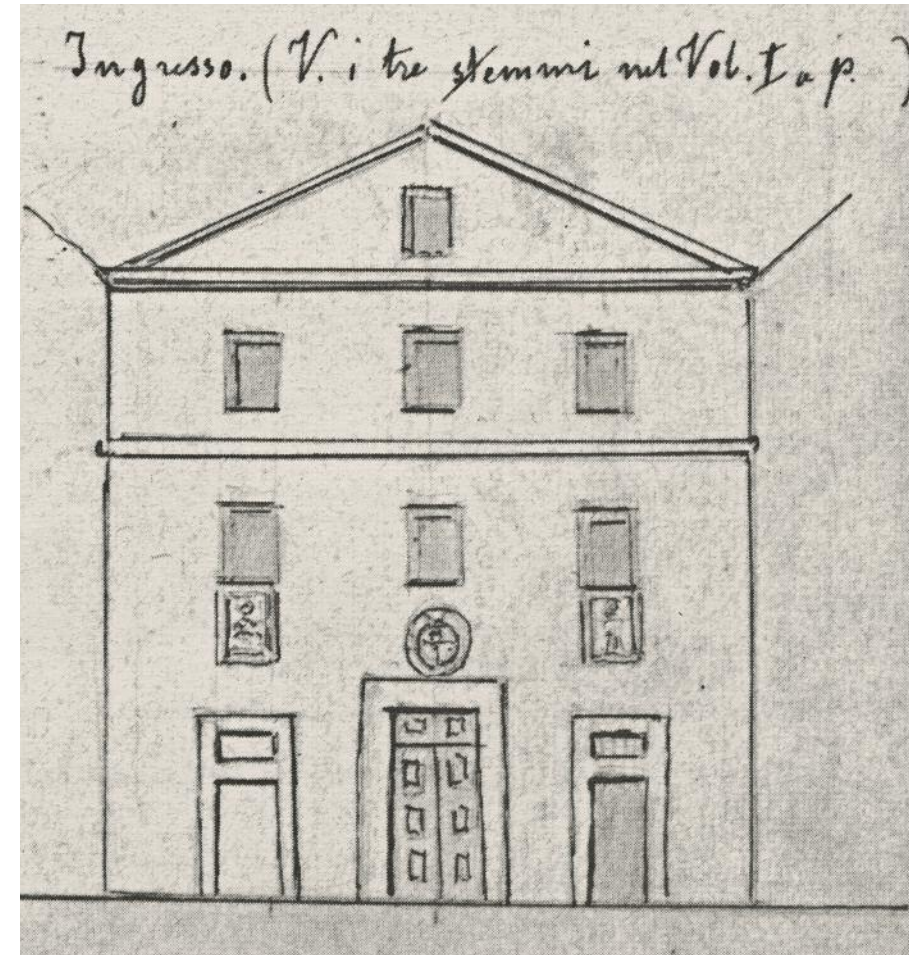 Ingresso. (V. i tre stemmi nel Vol. I a p. )